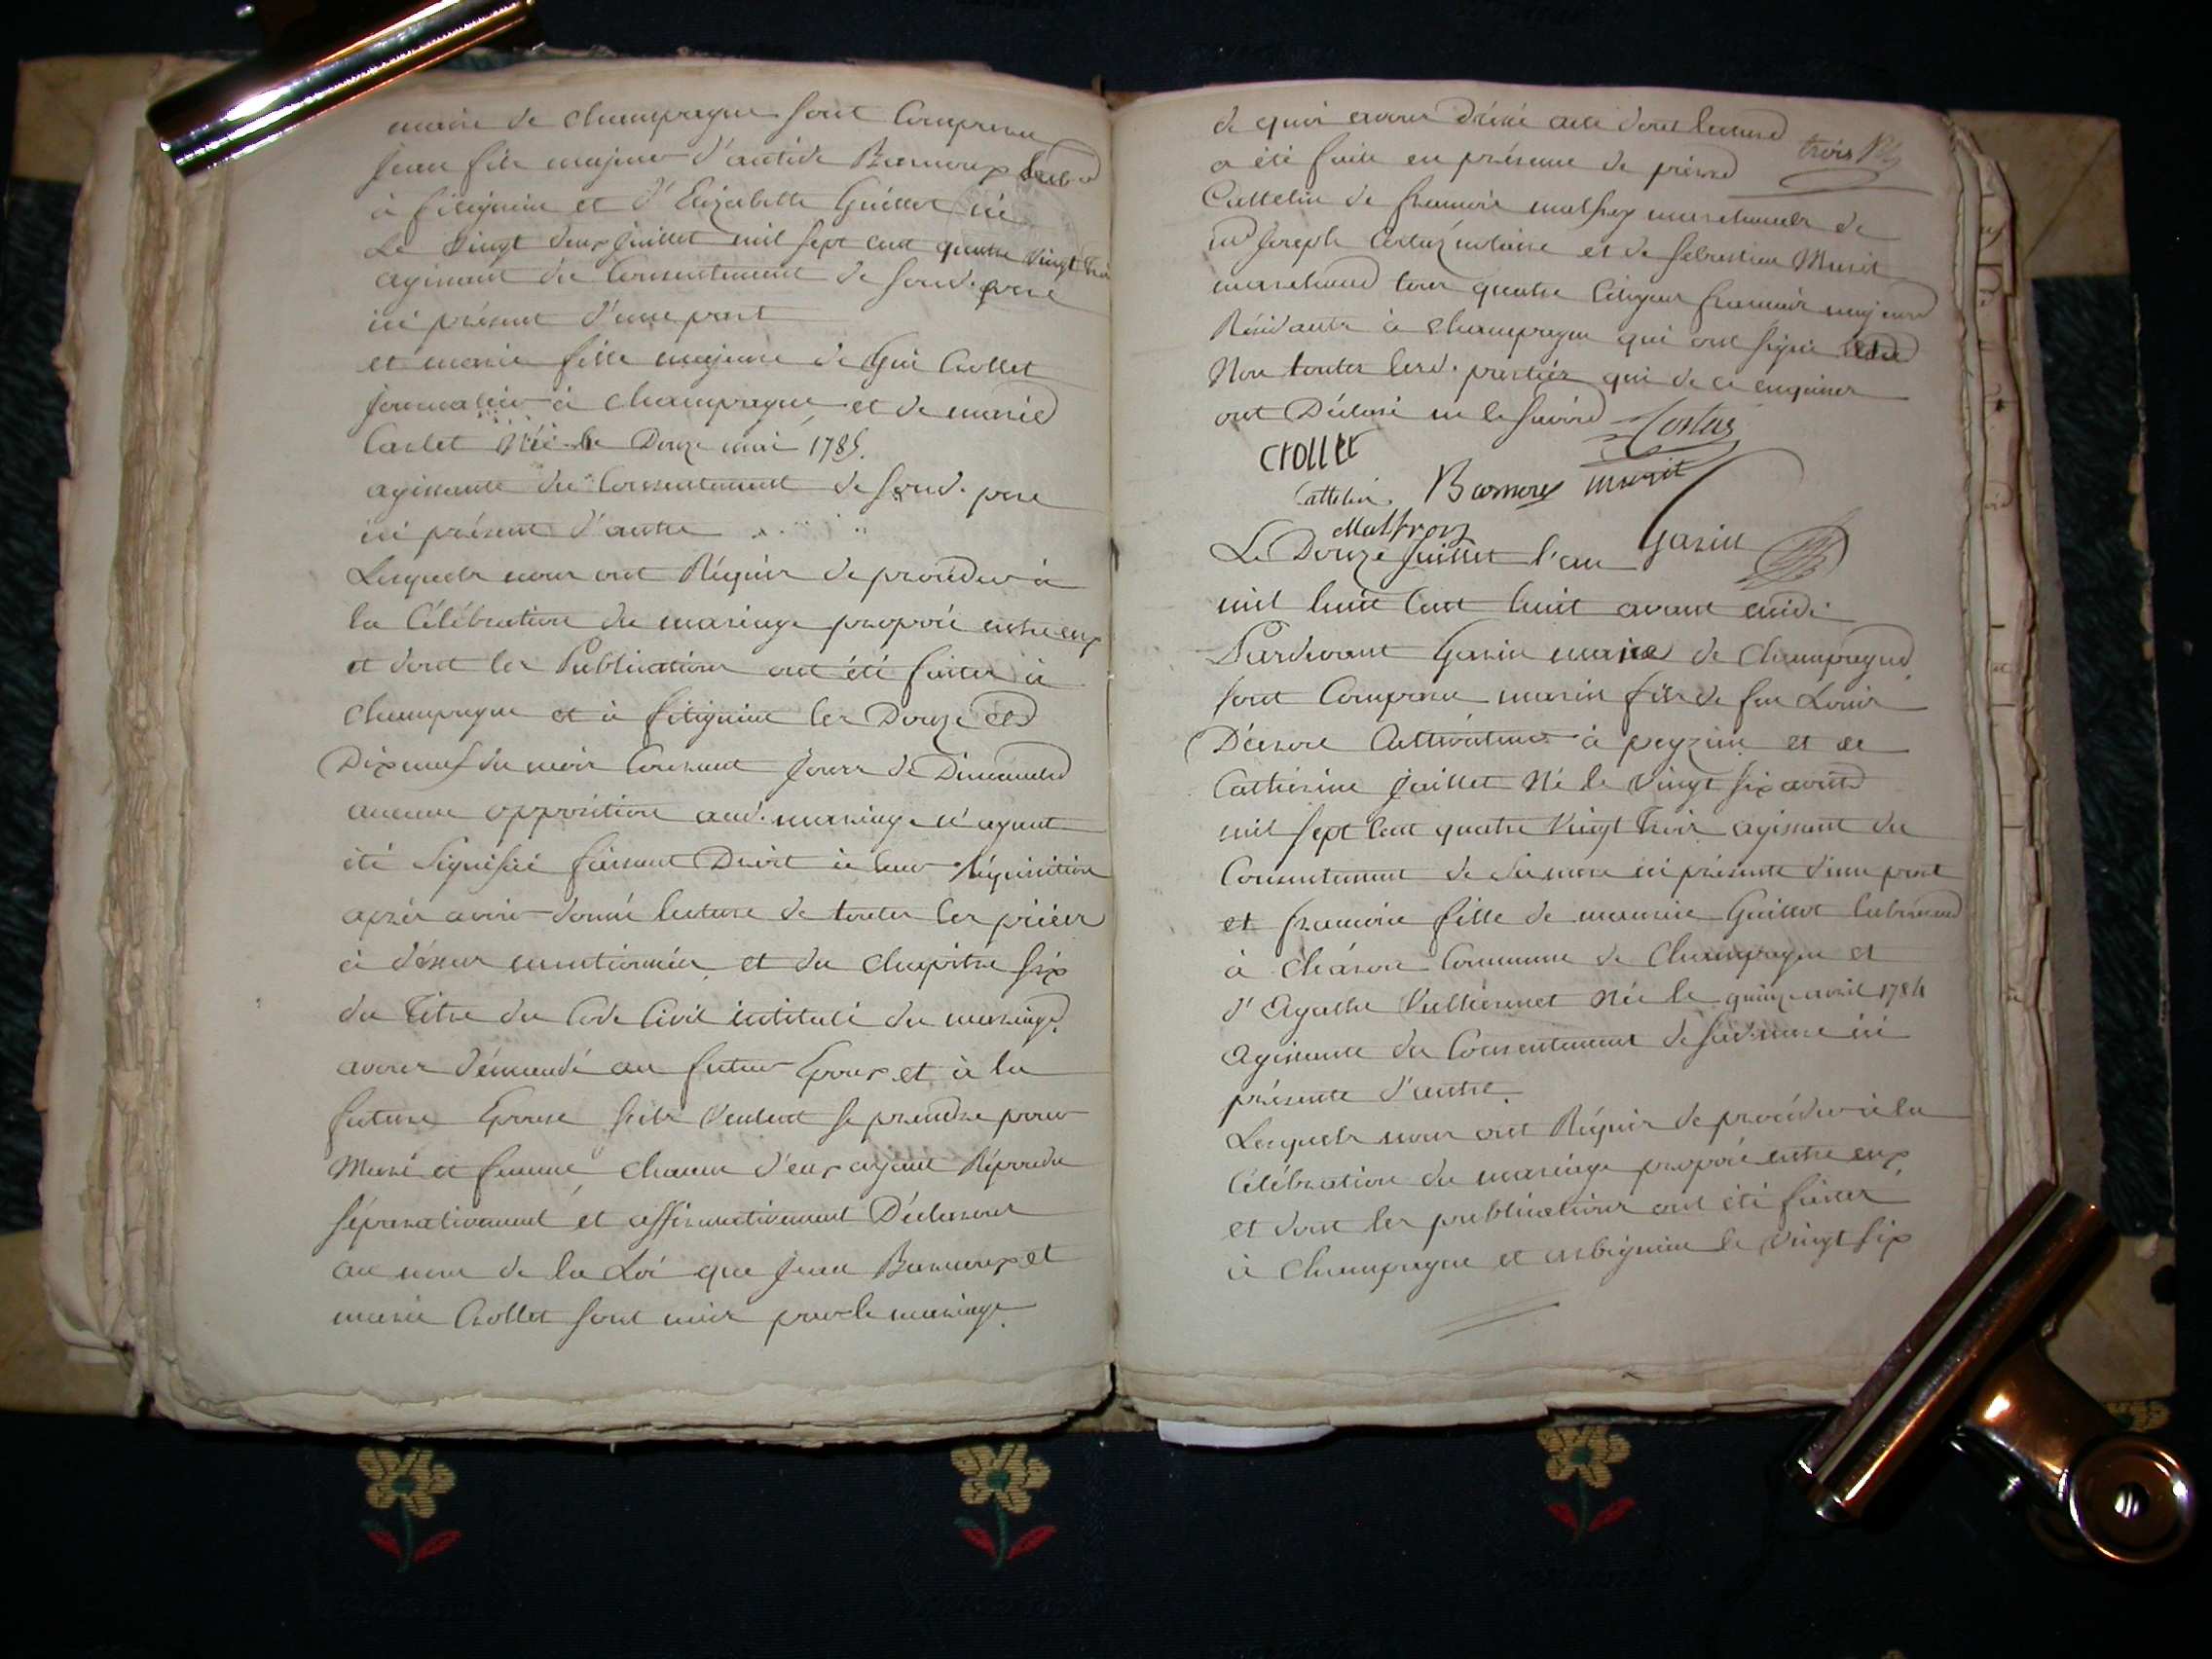 maire de champagne sont Comparu
Jean fils majeur d'antide Barnoux
à fitignieu et d'Elizabette Guillot né
Le Vingt deux Juillet mil sept cent quatre Vingt trois
agissant du Consentement de sond. pere
ici présent d'une part
et marie fille majeure de Gui Crollet
Journalier à champagne et de marie
Carlet Née le Douze mai 1785.
agissante du Consentement de sond. pere
ici présent d'autre
Lesquels nous ont Réquis de procéder à
la Célébration du mariage proposé entre eux
et dont les Publications ont été faites à
champagne et à fitignieu les Douze et
Dixneuf du mois Courant Jours de Dimanche
aucune opposition aud. mariage n'ayant
été Signifiée faisant Droit à leur réquisition
après avoir donné lecture de toutes les pièces
ci dessus mentionnées et du chapitre six
du Titre du Code Civil intitulé du mariage
avons démandé au futur Epoux et à la
future Epouse s'ils Veulent se prendre pour
Mari et femme chacun d'eux ayant Répondu
séparativement et affirmativement Déclarons
au nom de la Loi que Jean Barnoux et
marie Crollet sont unis par le mariage
de quoi avons dressé acte dont lecture
a été faite en présence de pierre
trois
Cattelin de francois malfroy marechaux de
md Joseph Costaz notaire et de sebastien Murit
marchand tous quatre Citoyens francais majeurs
Résidants à champagne qui ont signé
Non toutes lesd. parties qui de ce enquises
ont Déclaré ne le savoir Costaz
crollet
Cattelin Barnoux murit
Malfroy
Garin
Le Douze Juillet l'an
mil huit Cent huit avant midi
Pardevant Garin maire de champagne
sont Comparu marin fils de feu Louis
Décrose Cultivateur à peyzieu et de
Catherine Jaillet Né le Vingt six avril
mil sept Cent quatre Vingt trois agissant du
Consentement de sa mere ici présente d'une part
et francoise fille de maurice Guillot laboureur
à Chavore Commune de Champagne et
d'Agathe Vulliermet Née le quinze avril 1784
agissante du Consentement de sad. mere ici
présente d'autre
Lesquels nous ont Réquis de procéder à la
Célébration du mariage proposé entre eux
et dont les publications ont été faites
à Champagne et arbignieu le Vingt six